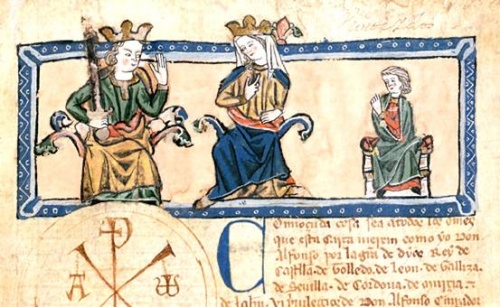 A ω
Connoçuda cosa sea atodos los omes
que esta carta uieren como yo Don
Alfonso por la gra de dios Rey de
Castiella de Tolledo de Leon de Galliza
de Seuilla de Cordoua de Murcia ⁊
de Jahen Vi priuilegio de Don Alfonso